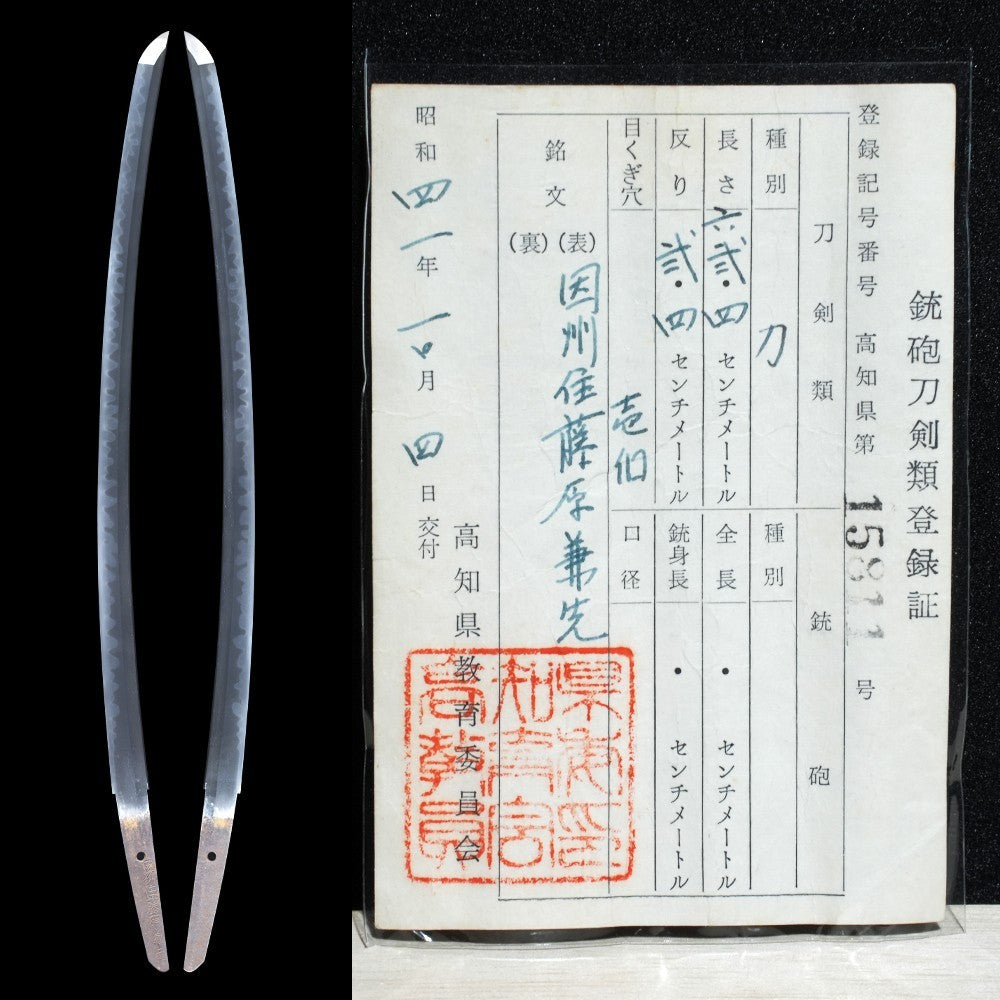 銃砲刀剣類登録証
登録記号番号 高知県第 15811 号
刀剣類
銃砲
種別 刀
種別
長さ 六弐・四 センチメートル
全長 ・ センチメートル
反り 弐・四 センチメートル
銃身長 ・ センチメートル
目くぎ穴 壱個
口径
銘文
(表) 因州住藤原兼先
(裏)
高知県教育委員会
昭和四一年一〇月四日交付